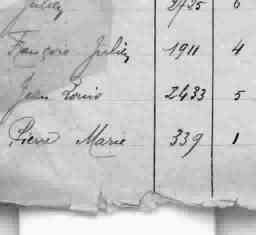 Julien 2425 6
François Julien 1911 4
Jean Louis 2433 5
Pierre Marie 339 1